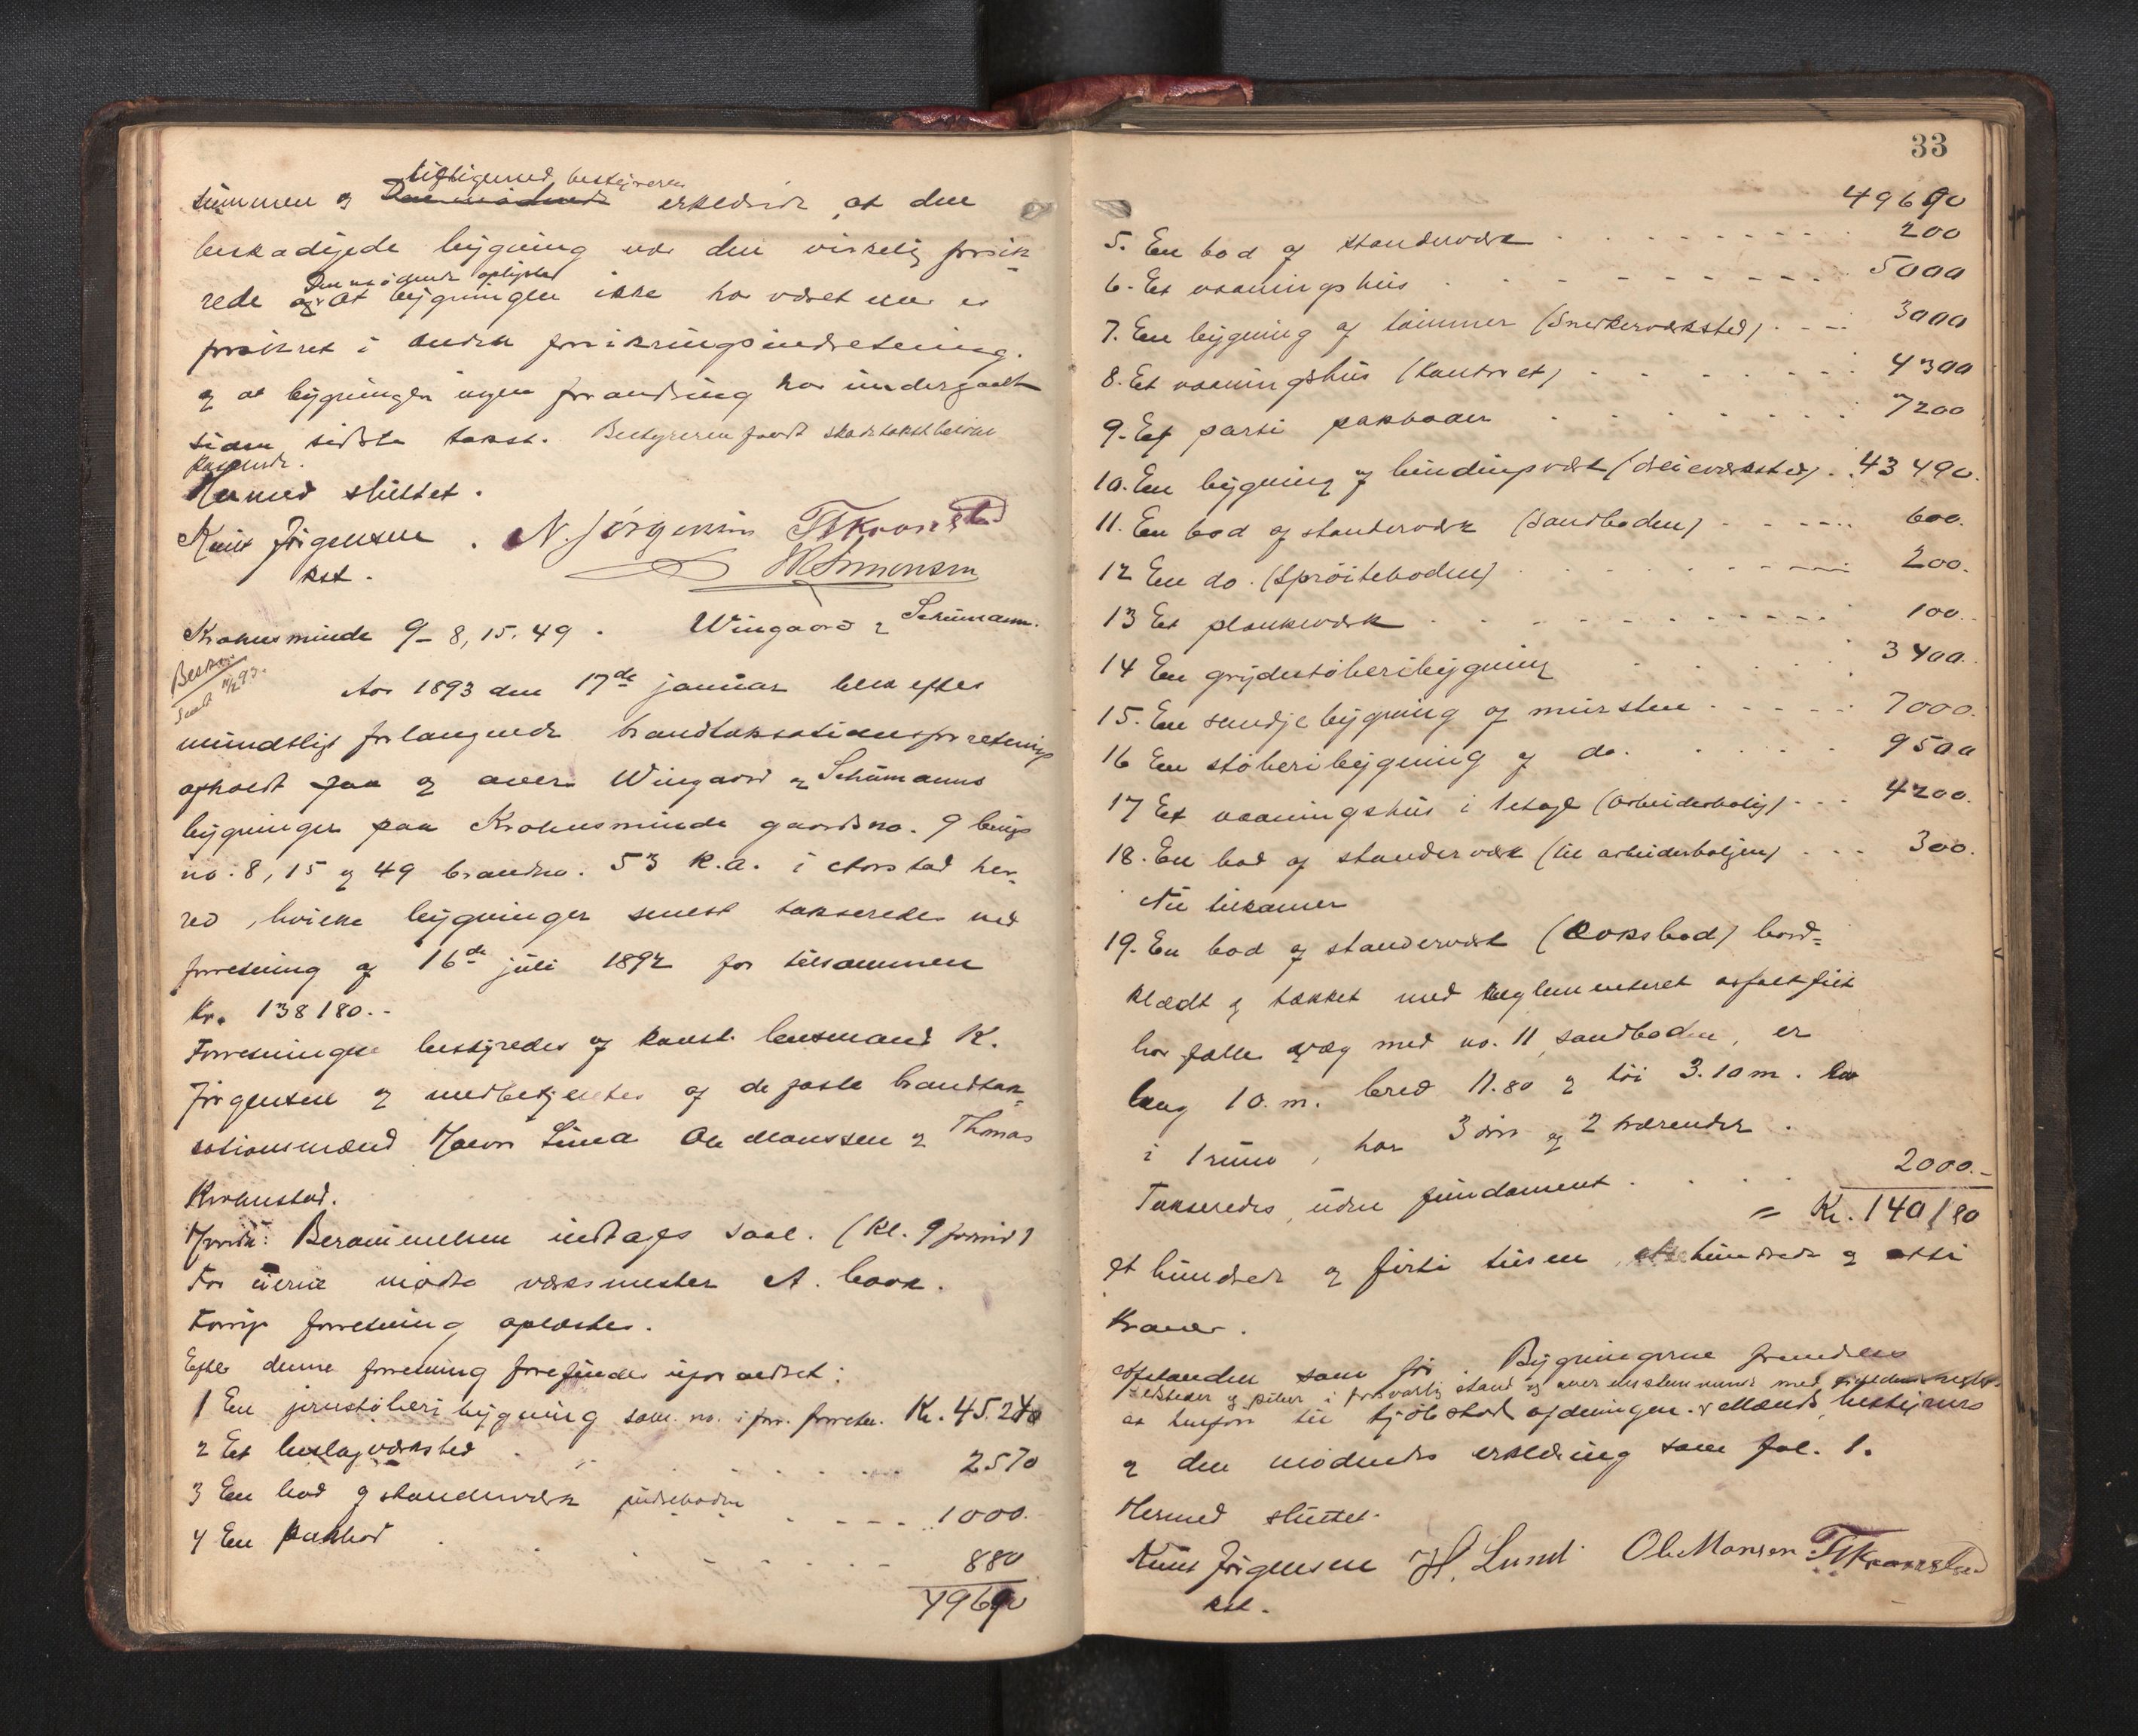 rigtigened, bestyreren
summen og Den mødende erklærede at den
beskadigede bygning var den virkelig forsik-
Den mødende oplyste
rede og at bygningen ikke har været eller er
forsikret i anden forsikringsindretning.
og at bygningen ingen forandring har undergaaet
siden sidste takst. Bestyreren fandt skadetakstbeløbet
passende.
Hermed sluttet.
Knut Jørgensen . N. Jørgensen TKronstad
kst. Simonsen
Krohnsminde 9 - 8, 15. 49 . Wingaard & Schumann.
Beskr.
Aar 1893 den 17de januar blev efter
mundtligt forlangende brandtaksationsforretning
afholdt paa og over Wingaard & Schumanns
bygninger paa Krohnsminde gaardsno. 9 brugs
no: 8, 15 og 49 brandno. 53 K.a. i Aarstad her-
red, hvilke bygninger senest takseredes ved
forretning af 16de juli 1892 for tilsammen
Kr. 138180.-
Forretningen bestyredes af konst. lensmand K.
Jørgensen og medbetjentes af de faste brandtak-
sationsmænd Lund Ole Monssen & Thomas
Krohnstad.
Berammelsen indtages saal. (Kl. 9 formd)
For eierne mødte verksmester A. Cook.
Forrige forretning oplæstes.
Efter denne forretning forefindes uforandret:
1 En jernstøberi bygning som no. i forr. forretn. Kr. 45.240
2 Et beslagværksted . . . . . 2570
3 En bod af standerværk . . . . 1000.
4 En pakbod . . . . 880
49690
33
49690
5. En bod af standerværk . . . . . 200
6. Et vaaningshus . . . . . 5000
7. En bygning af tømmer (Snedkerværksted) . . . 3000
8. Et vaaningshus (Kontoret) . . . . . 4300
9. Et parti pakboder . . . . . 7200
10. En bygning af bindingsværk (Dreieværksted) . 43490.
11. En bod af standerværk (Sandboden) . . . . 600.
12 En do. (Sprøiteboden) . . . . . 200.
13 Et plankeværk . . . . . 100.
14 En grydestøberibygning . . . . . 3400.
15. En smedjebygning af mursten . . . . . 7000.
16 En støberibygning af do. . . . . 9500
17 Et vaaningshus i 1 etage (Arbeiderbolig) . . . 4200.
18. En bod af standerværk (til arbeiderboligen) . . . 300.
Nu tilkommer
19. En bod af standerværk (Coksbod) bord-
klædt & tækket med reglementeret asfaltfilt
har fælles væg med no. 11, sandboden, er
lang 10. m. bred 11.80 & høi 3.10 m.
i 1 rum, har 3 døre og 2 værender.
Takseredes, uden fundament . . . . 2000.-
= Kr. 140180
et hundrede og firti tusen, et hundrede & otti
kroner.
Afstanden som før. Bygningerne fremdeles
ildsteder og piber i forsvarlig stand og overensstemmende med
at henføre til kjøbstadafdelingen. Mænds, bestyrers
& den mødendes erklæring som fol. 1.
Hermed sluttet.
Knut Jørgensen H. Lund Ole Monsen TKronstad
kst.